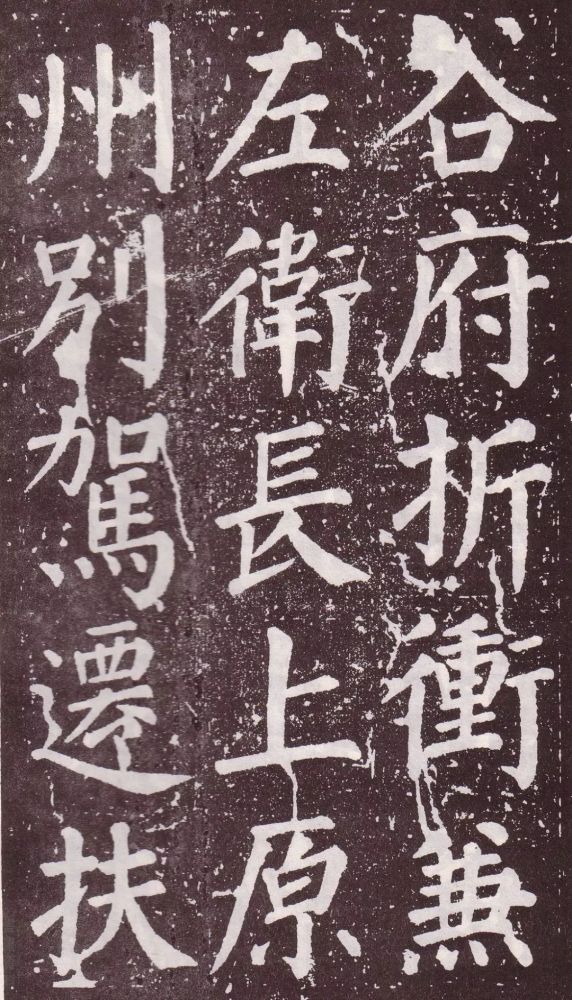 谷府折衝兼
左衛長上原
州別駕遷扶